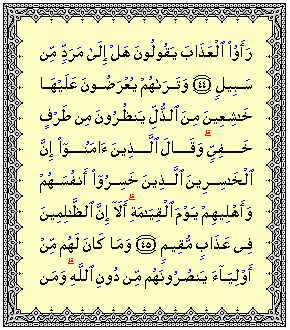 رَأَوُا۟ ٱلْعَذَابَ يَقُولُونَ هَلْ إِلَىٰ مَرَدٍّ مِّن
سَبِيلٍ ٤٤ وَتَرَىٰهُمْ يُعْرَضُونَ عَلَيْهَا
خَٰشِعِينَ مِنَ ٱلذُّلِّ يَنظُرُونَ مِن طَرْفٍ
خَفِىٍّ ۗ وَقَالَ ٱلَّذِينَ ءَامَنُوٓا۟ إِنَّ
ٱلْخَٰسِرِينَ ٱلَّذِينَ خَسِرُوٓا۟ أَنفُسَهُمْ
وَأَهْلِيهِمْ يَوْمَ ٱلْقِيَٰمَةِ ۗ أَلَآ إِنَّ ٱلظَّٰلِمِينَ
فِى عَذَابٍ مُّقِيمٍ ٤٥ وَمَا كَانَ لَهُم مِّنْ
أَوْلِيَآءَ يَنصُرُونَهُم مِّن دُونِ ٱللَّهِ ۗ وَمَن